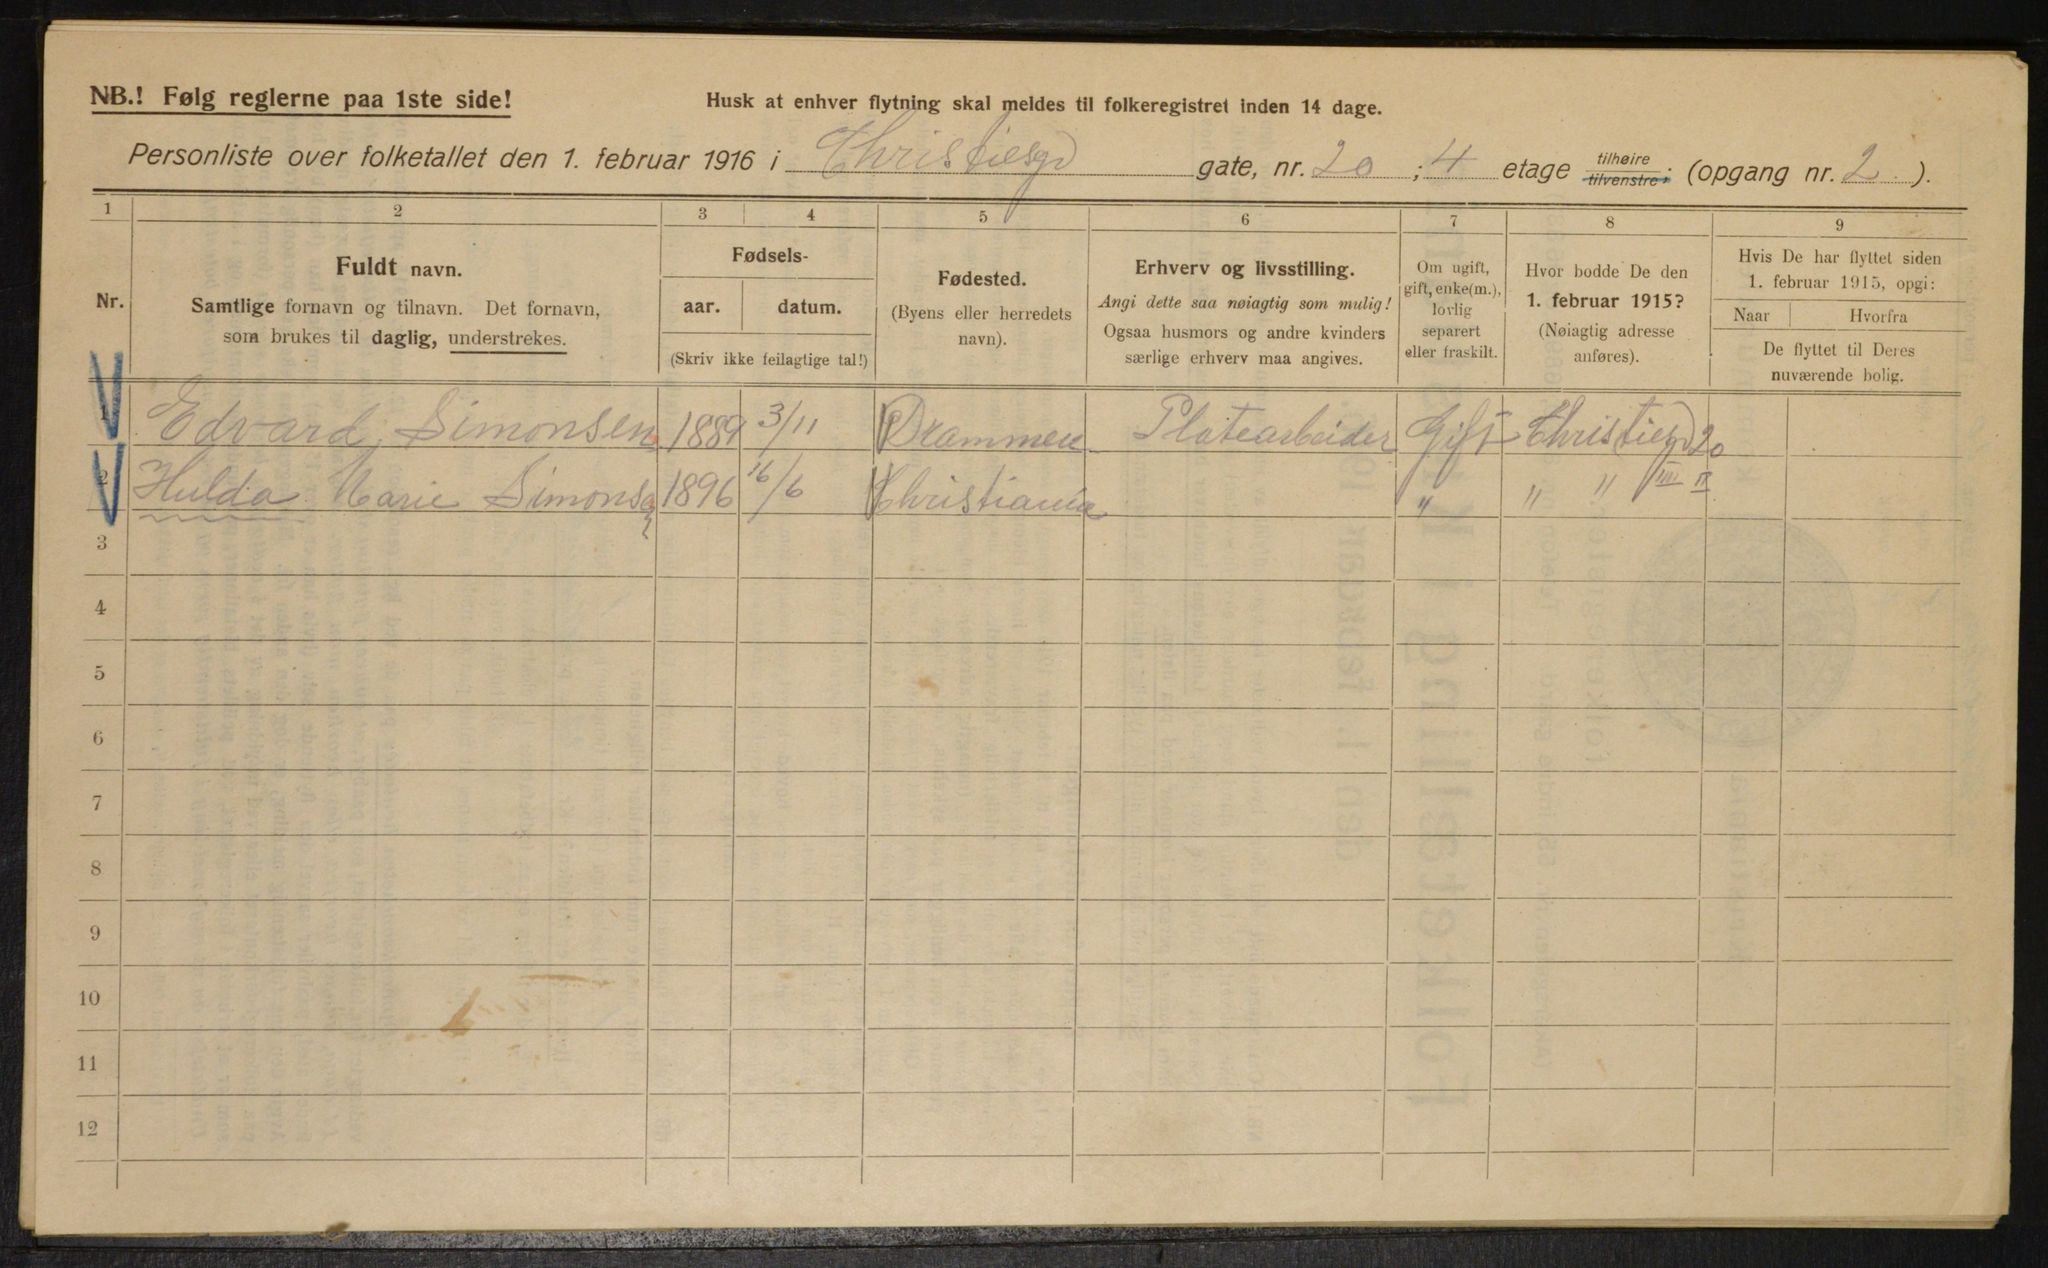 NB.! Følg reglerne paa 1ste side!
Husk at enhver flytning skal meldes til folkeregistret inden 14 dage.
Personliste over folketallet den 1. februar 1916 i Christiesgd gate, nr. 20 ; 4 etage tilhøire tilvenstre; (opgang nr. 2 ).
1 2 3 4 5 6 7 8 9
Nr.
Fuldt navn.
Samtlige fornavn og tilnavn. Det fornavn,
som brukes til daglig, understrekes.
Fødsels-
aar. datum.
(Skriv ikke feilagtige tal!)
Fødested.
(Byens eller herredets
navn).
Erhverv og livsstilling.
Angi dette saa nøiagtig som mulig!
Ogsaa husmors og andre kvinders
særlige erhverv maa angives.
Om ugift,
gift, enke(m.),
lovlig
separert
eller fraskilt.
Hvor bodde De den
1. februar 1915?
(Nøiagtig adresse
anføres).
Hvis De har flyttet siden
1. februar 1915, opgi:
Naar Hvorfra
De flyttet til Deres
nuværende bolig.
1 Edvard Simonsen 1889 3/11 Drammen Platearbeider Gift Christiesgd 20
2 Hulda Marie Simonsen 1896 16/6 Christiania " " " IIII II
3
4
5
6
7
8
9
10
11
12